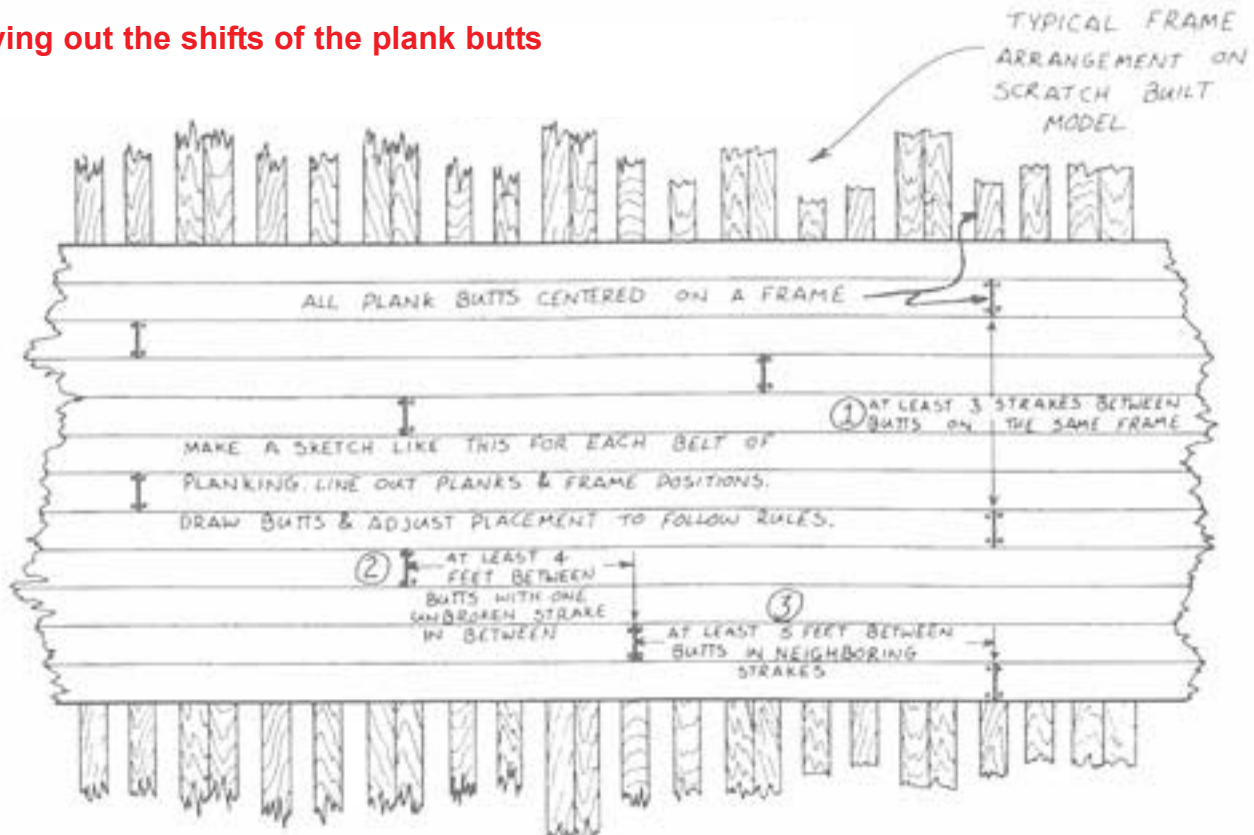 ying out the shifts of the plank butts
TYPICAL FRAME
ARRANGEMENT ON
SCRATCH BUILT
MODEL
ALL PLANK BUTTS CENTERED ON A FRAME
① AT LEAST 3 STRAKES BETWEEN
BUTTS ON THE SAME FRAME
MAKE A SKETCH LIKE THIS FOR EACH BELT OF
PLANKING. LINE OUT PLANKS & FRAME POSITIONS.
DRAW BUTTS & ADJUST PLACEMENT TO FOLLOW RULES.
② AT LEAST 4
FEET BETWEEN
BUTTS WITH ONE
UNBROKEN STRAKE
IN BETWEEN
③
AT LEAST 5 FEET BETWEEN
BUTTS IN NEIGHBORING
STRAKES